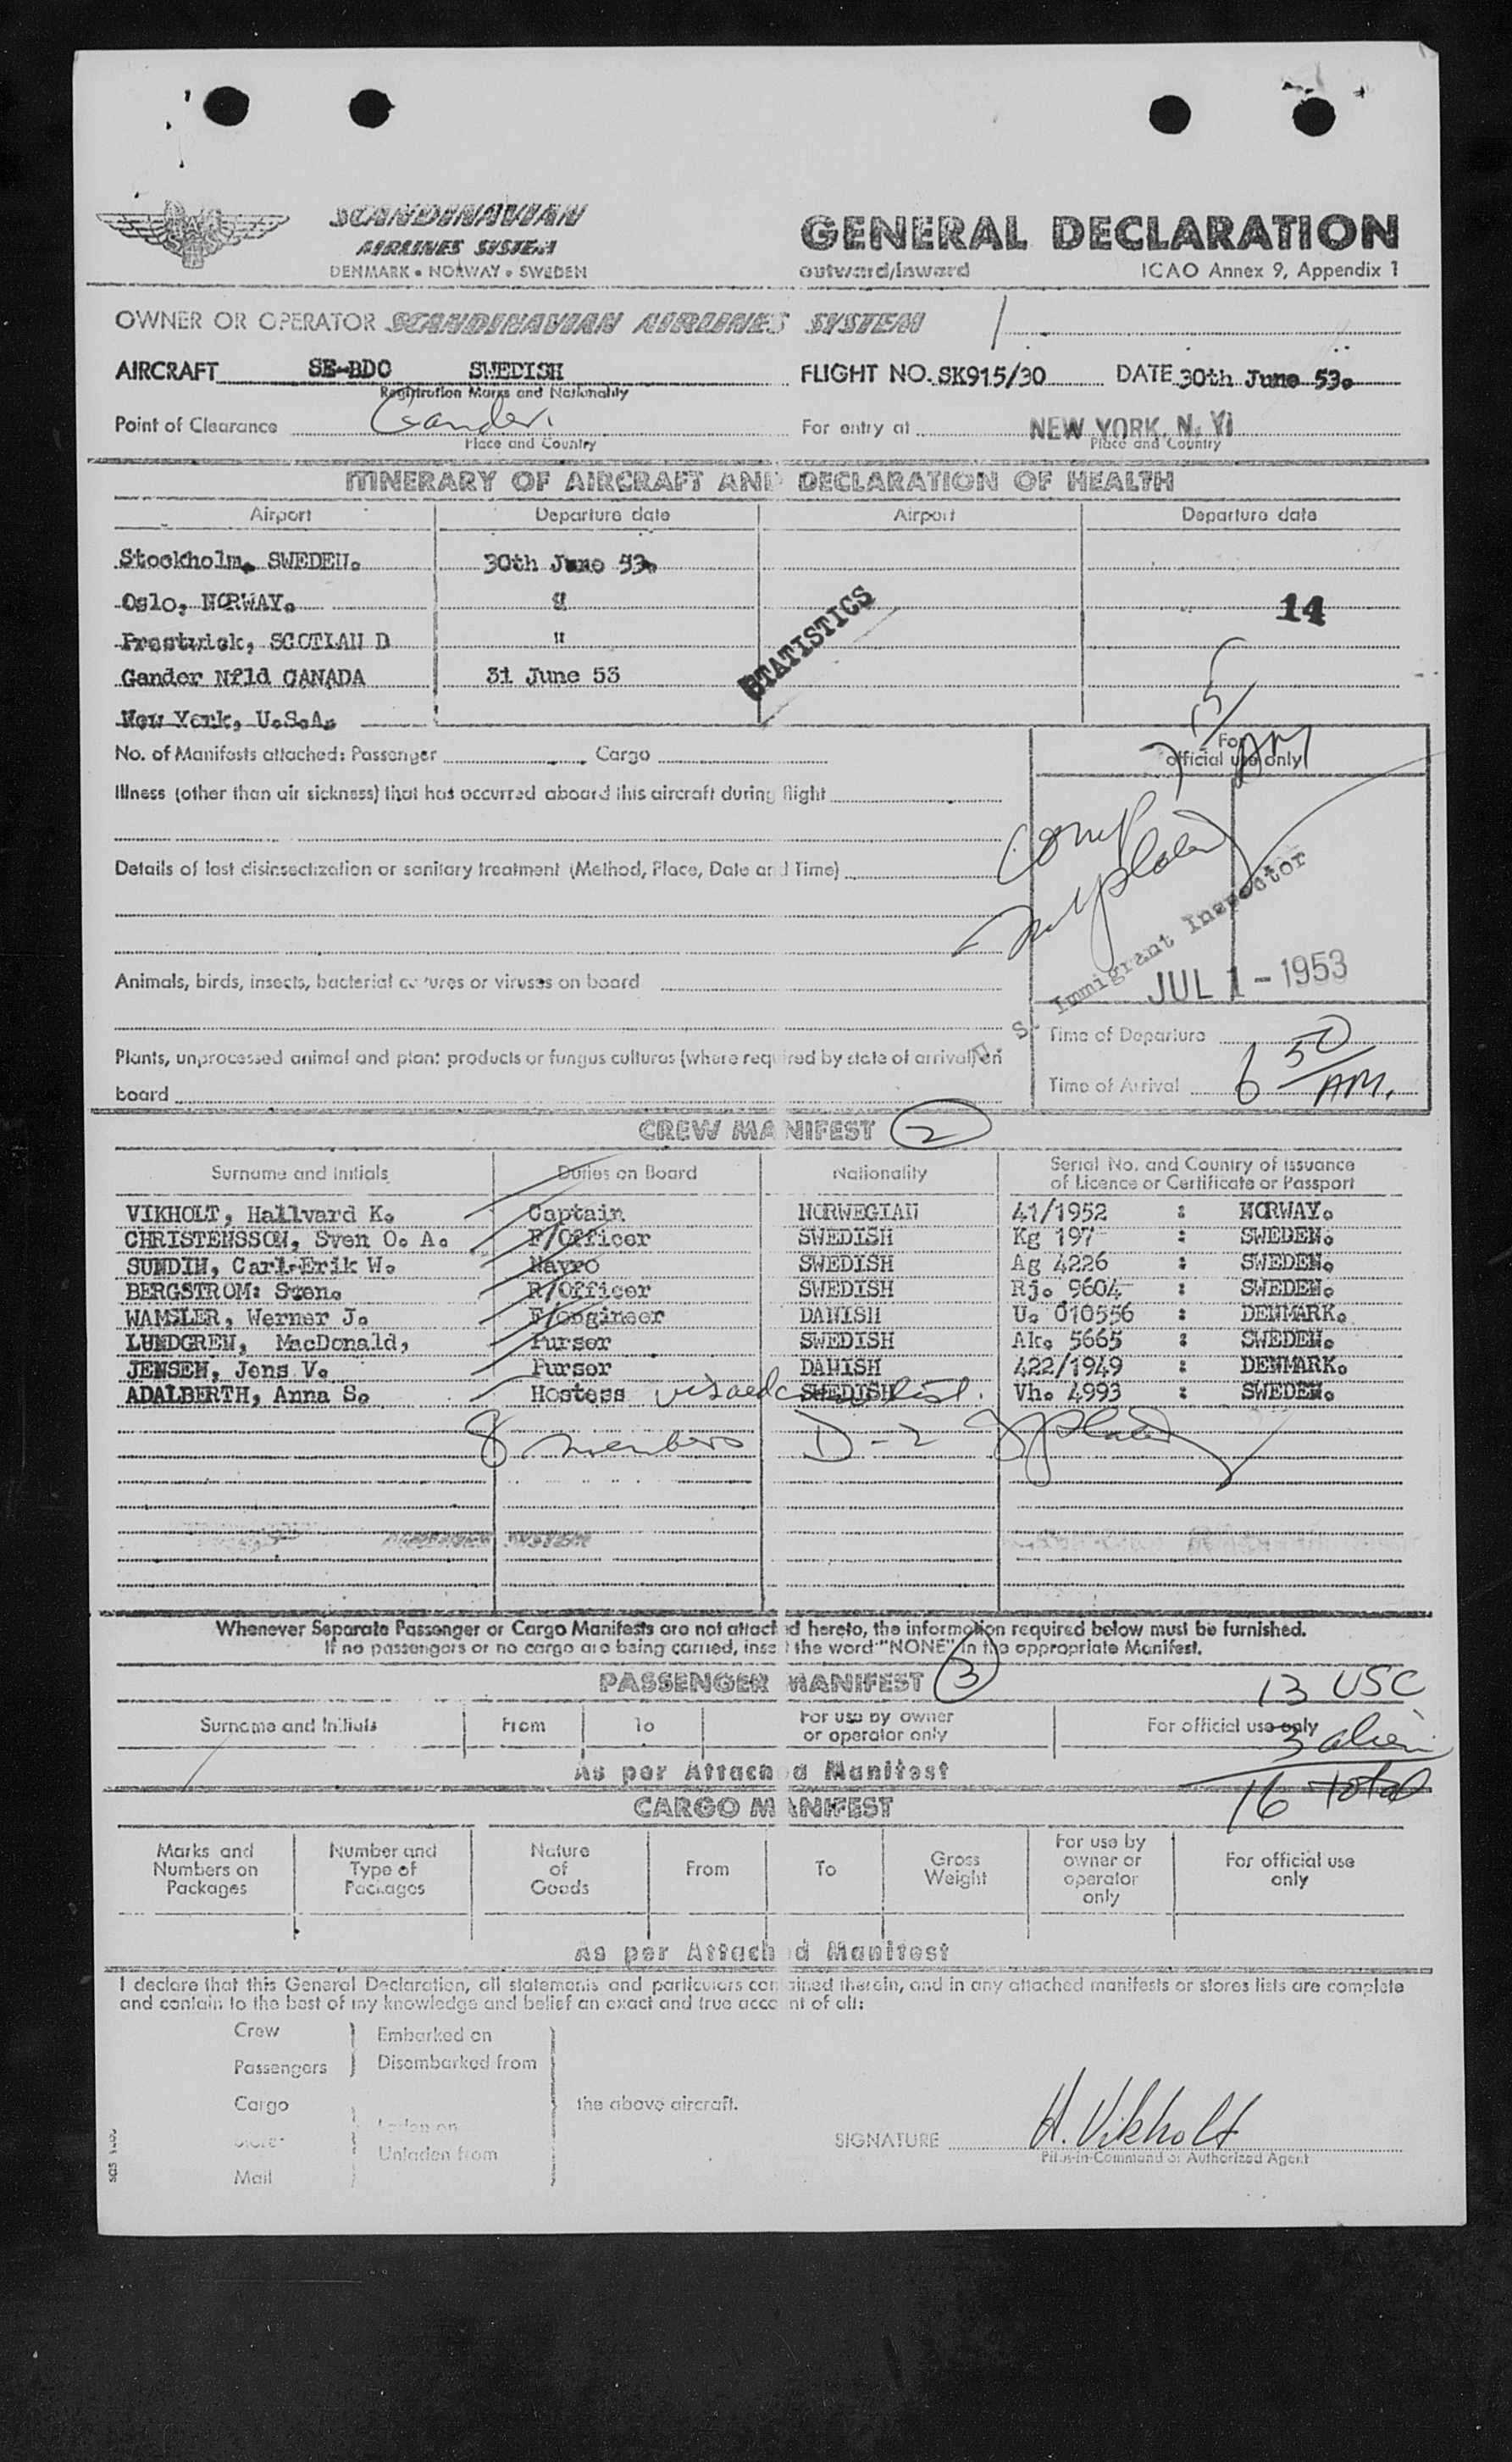 SCANDINAVIAN
AIRLINES SYSTEM
DENMARK • NORWAY • SWEDEN
GENERAL DECLARATION
outward/inward ICAO Annex 9, Appendix 1
OWNER OR OPERATOR SCANDINAVIAN AIRLINES SYSTEM
AIRCRAFT SE-BDO SWEDISH FLIGHT NO. SK915/30 DATE 30th June 53.
Registration Marks and Nationality
Point of Clearance Gander. For entry at NEW YORK, N. Y.
Place and Country Place and Country
ITINERARY OF AIRCRAFT AND DECLARATION OF HEALTH
Airport Departure date Airport Departure date
Stockholm, SWEDEN. 30th June 53.
Oslo, NORWAY. " 14
STATISTICS
Prestwick, SCOTLAN D "
Gander Nfld CANADA 31 June 53
New York, U.S.A.
No. of Manifests attached: Passenger Cargo
For official use only
Illness (other than air sickness) that has occurred aboard this aircraft during flight
Details of last disinsectization or sanitary treatment (Method, Place, Date and Time)
Immigrant Inspector
Animals, birds, insects, bacterial cultures or viruses on board
JUL 1 - 1953
Time of Departure
Plants, unprocessed animal and plant products or fungus cultures (where required by state of arrival) on
board
Time of Arrival 6 50 AM.
CREW MANIFEST 2
Surname and Initials Duties on Board Nationality Serial No. and Country of issuance
of Licence or Certificate or Passport
VIKHOLT, Hallvard K. Captain NORWEGIAN 41/1952 : NORWAY.
CHRISTENSSON, Sven O. A. F/Officer SWEDISH Kg 197 : SWEDEN.
SUNDIN, Carl-Erik W. Navro SWEDISH Ag 4226 : SWEDEN.
BERGSTROM: Sven. R/Officer SWEDISH Rj. 9604 : SWEDEN.
WAMSLER, Werner J. F/engineer DANISH U. 010556 : DENMARK.
LUNDGREN, MacDonald, Purser SWEDISH Ak. 5665 : SWEDEN.
JENSEN, Jens V. Purser DANISH 422/1949 : DENMARK.
ADALBERTH, Anna S. Hostess SWEDISH Vh. 4993 : SWEDEN.
visaed list.
8 members D-2
AIRLINES SYSTEM
Whenever Separate Passenger or Cargo Manifests are not attached hereto, the information required below must be furnished.
If no passengers or no cargo are being carried, insert the word "NONE" in the appropriate Manifest.
PASSENGER MANIFEST 3
13 USC
Surname and Initials From To For use by owner
or operator only For official use only
3 alien
As per Attached Manifest
16 total
CARGO MANIFEST
Marks and
Numbers on
Packages Number and
Type of
Packages Nature
of
Goods From To Gross
Weight For use by
owner or
operator
only For official use
only
As per Attached Manifest
I declare that this General Declaration, all statements and particulars contained therein, and in any attached manifests or stores lists are complete
and contain to the best of my knowledge and belief an exact and true account of all:
Crew Embarked on
Passengers Disembarked from
Cargo the above aircraft.
Stores Laden on
Unladen from
Mail
SIGNATURE H. Vikholt
Pilot-in-Command or Authorized Agent